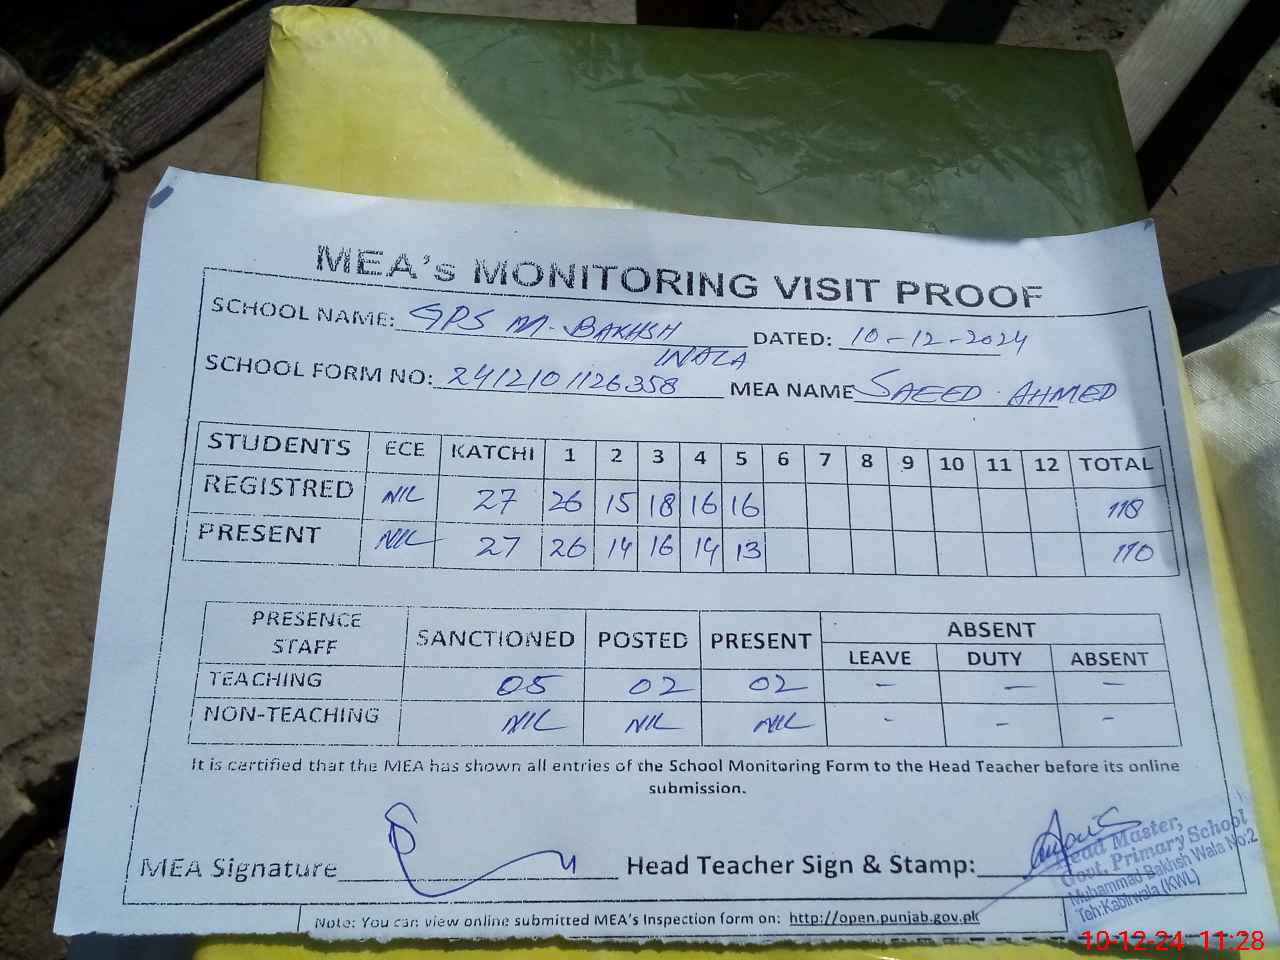 MEA's MONITORING VISIT PROOF
SCHOOL NAME: GPS M. BAKHSH WALA DATED: 10-12-2024
SCHOOL FORM NO: 2412101126358 MEA NAME SAEED AHMED
STUDENTS ECE KATCHI 1 2 3 4 5 6 7 8 9 10 11 12 TOTAL
REGISTRED NIL 27 26 15 18 16 16 118
PRESENT NIL 27 26 14 16 14 13 110
PRESENCE STAFF SANCTIONED POSTED PRESENT ABSENT
LEAVE DUTY ABSENT
TEACHING 05 02 02 - - -
NON-TEACHING NIL NIL NIL - - -
It is certified that the MEA has shown all entries of the School Monitoring Form to the Head Teacher before its online
submission.
MEA Signature Head Teacher Sign & Stamp:
Head Master,
Govt. Primary School
Muhammad Bakhsh Wala No.2
Teh:Kabirwala (KWL)
Note: You can view online submitted MEA's Inspection form on: http://open.punjab.gov.pk
10-12-24 11:28